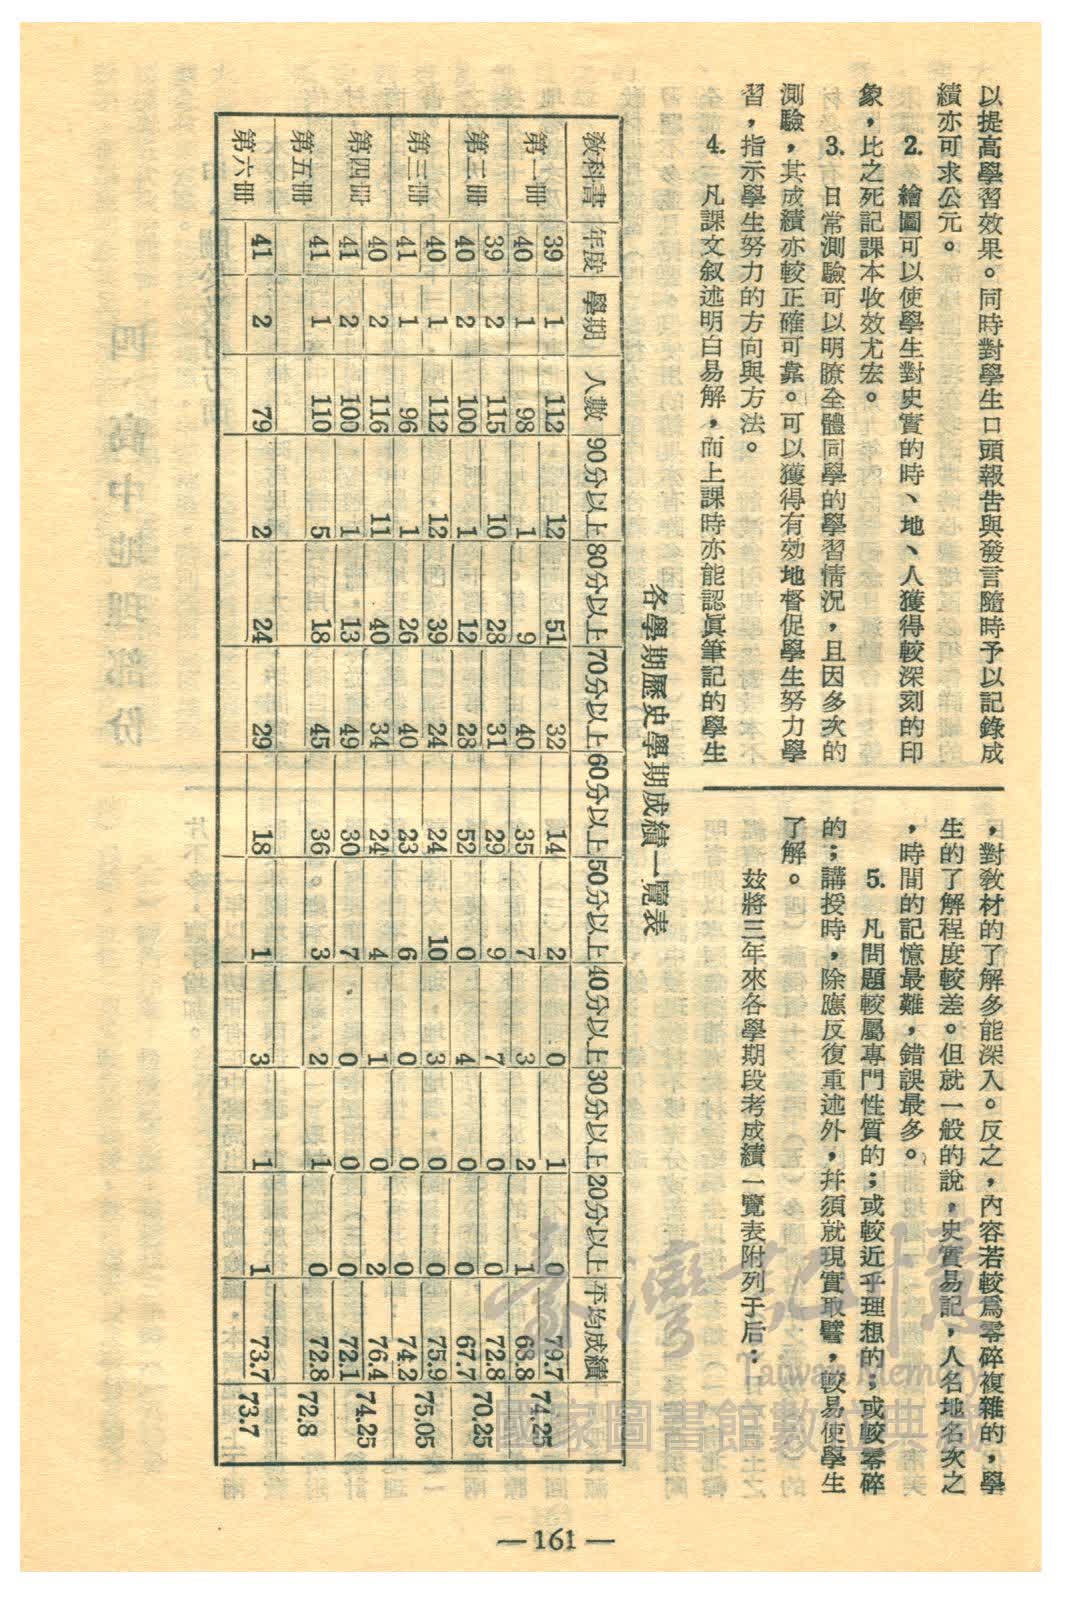 以提高學習效果。同時對學生口頭報告與發言隨時予以記錄成
績亦可求公元。
2. 繪圖可以使學生對史實的時、地、人獲得較深刻的印
象，比之死記課本收效尤宏。
3. 日常測驗可以明瞭全體同學的學習情況，且因多次的
測驗，其成績亦較正確可靠。可以獲得有効地督促學生努力學
習，指示學生努力的方向與方法。
4. 凡課文叙述明白易解，而上課時亦能認眞筆記的學生
，對敎材的了解多能深入。反之，內容若較爲零碎複雜的，學
生的了解程度較差。但就一般的說，史實易記，人名地名次之
，時間的記憶最難，錯誤最多。
5. 凡問題較屬專門性質的；或較近乎理想的；或較零碎
的；講授時，除應反復重述外，幷須就現實取譬，較易使學生
了解。
玆將三年來各學期段考成績一覽表附列于后：
各學期歷史學期成績一覽表
敎科書 年度 學期 人數 90分以上 80分以上 70分以上 60分以上 50分以上 40分以上 30分以上 20分以上 平均成績
第一冊 39 1 112 12 51 32 14 2 0 1 0 79.7 74.25
40 1 98 1 9 40 35 7 3 2 1 68.8
第二冊 39 2 115 10 28 31 29 9 7 0 0 72.8 70.25
40 2 100 1 12 28 52 0 4 0 0 67.7
第三冊 40 1 112 12 39 24 24 10 3 0 0 75.9 75.05
41 1 96 1 26 40 23 6 0 0 0 74.2
第四冊 40 2 116 11 40 34 24 4 1 0 2 76.4 74.25
41 2 100 1 13 49 30 7 0 0 0 72.1
第五冊 41 1 110 5 18 45 36 3 2 1 0 72.8 72.8
第六冊 41 2 79 2 24 29 18 1 3 1 1 73.7 73.7
臺灣記憶
Taiwan Memory
國家圖書館數位典藏
—161—